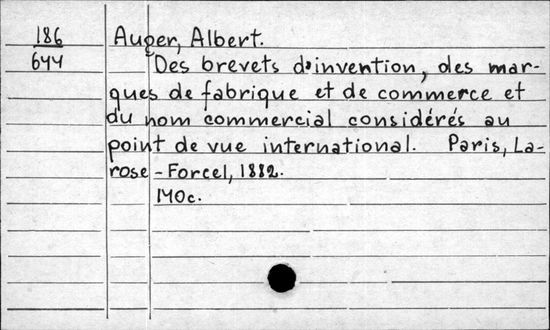 186 Auger, Albert.
644 Des brevets d'invention, des mar-
ques de fabrique et de commerce et
du nom commercial considérés au
point de vue international. Paris, La-
rose - Forcel, 1882.
140c.